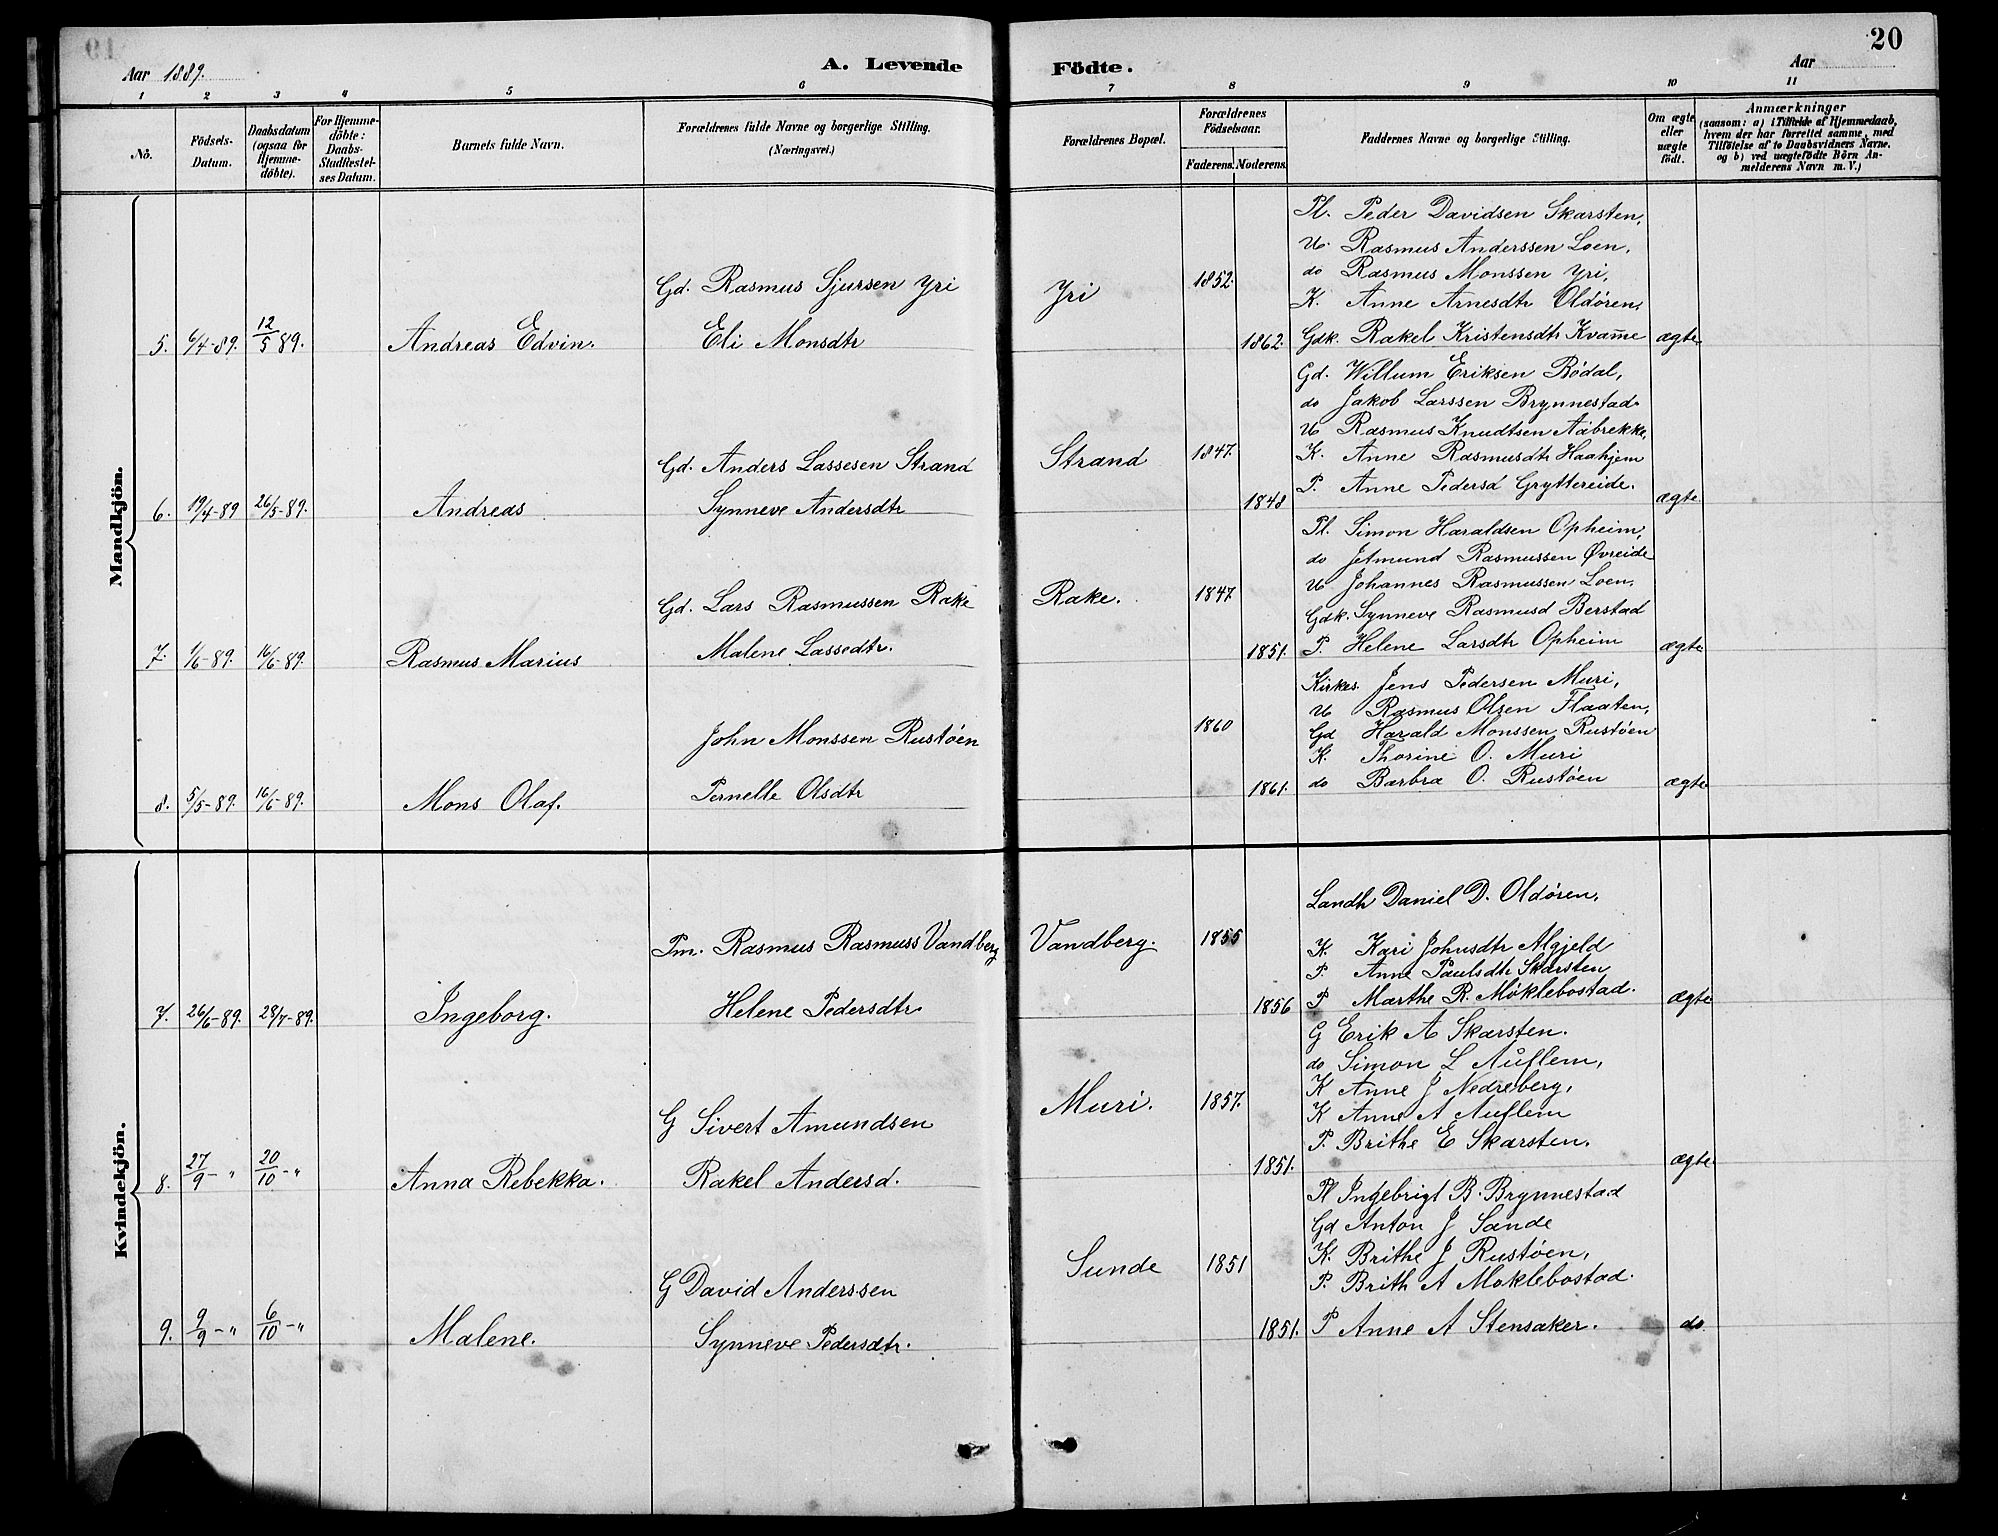 Aar 1889. A. Levende Födte. Aar 20
1 2 3 4 5 6 7 8 9 10 11
Nö.
Födsels-Datum.
Daabsdatum (ogsaa for Hjemme-döbte).
For Hjemme-döbte: Daabs-Stadfæstel-ses Datum.
Barnets fulde Navn.
Forældrenes fulde Navne og borgerlige Stilling. (Næringsvei.)
Forældrenes Bopæl.
Forældrenes Födselsaar.
Faderens. Moderens.
Faddernes Navne og borgerlige Stilling.
Om ægte eller uægte födt.
Anmærkninger
(saasom: a) i Tilfælde af Hjemmedaab, hvem der har forrettet samme, med Tilföielse af to Daabsvidners Navne. og b) ved uægtefödte Börn An-melderens Navn m. V.)
Mandkjön.
Pl. Peder Davidsen Skarsten,
U. Rasmus Anderssen Loen,
Gd. Rasmus Sjursen Yri Yri 1852. do Rasmus Monssen Yri,
K. Anne Arnesdtr Oldøren,
5. 6/4-89. 12/5 89. Andreas Edvin. Eli Monsdtr 1862. Gdk. Rakel Kristensdtr Kvam̄e ægte
Gd. Willum Eriksen Bødal,
do Jakob Larssen Brynnestad.
U Rasmus Knudtsen Aabrekke,
Gd. Anders Lassesen Strand Strand 1847. K. Anne Rasmusdtr Haahjem
P. Anne Pedersd Gryttereide.
6. 19/4-89 26/5-89. Andreas Synneve Andersdtr 1848 ægte
Pl. Simon Haraldsen Opheim,
do Jetmund Rasmussen Øvreide
Gd. Lars Rasmussen Rake Rake. 1847 U Johannes Rasmussen Loen,
Gdk. Synneve Rasmusd Berstad
7. 1/6-89. 16/6-89. Rasmus Marius Malene Lassedtr. 1851. P Helene Larsdtr Opheim ægte
Kirkes. Jens Pedersen Muri,
U Rasmus Olsen Flaaten,
John Monssen Rustøen 1860 Gd Harald Monssen Rustøen
K. Thorine O. Muri
8. 5/5-89. 16/6-89. Mons Olaf. Pernelle Olsdtr 1861. do Barbra O. Rustøen ægte
Kvindekjön.
Landh Daniel D. Oldøren,
Pm. Rasmus Rasmuss Vandberg Vandberg. 1855 K. Kari Johnsdtr Mgjeld
P. Anne Paulsdtr Skarsten
7. 26/6-89. 28/7-89. Ingeborg. Helene Pedersdtr. 1856 P Marthe R. Møklebostad. ægte
G Erik A Skarsten.
do Simon L Auflem,
K Anne J Nedreberg,
G Sivert Amundsen Muri. 1857. K Anne A Auflem
P. Brithe E Skarsten.
8. 27/9-" 20/10-" Anna Rebekka. Rakel Andersd. 1851. ægte.
Pl Ingebrigt B. Brynnestad
Gd Anton J Sande
Sunde 1851 K. Brithe J Rustøen,
G David Anderssen P. Brith A Moklebostad.
9. 9/9-" 6/10-" Malene. Synneve Pedersdtr. 1851. P Anne A Stensaker. do